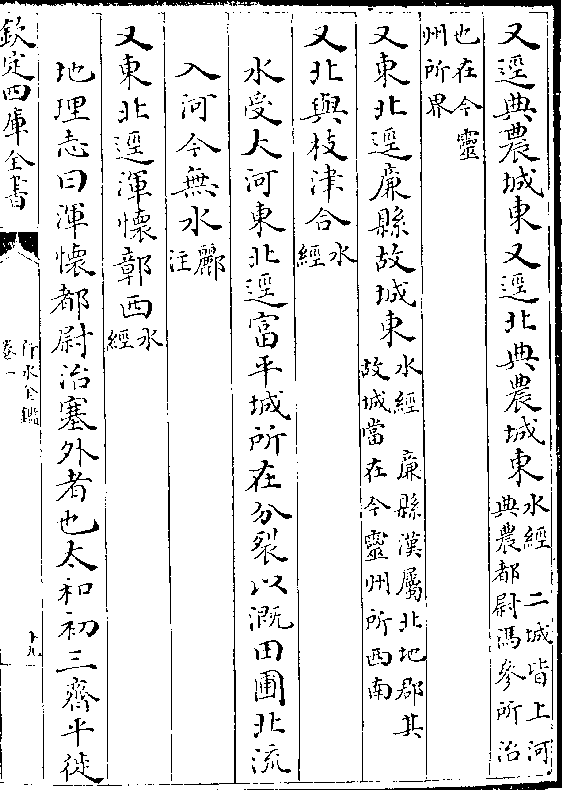 又逕典農城東又逕北典農城東水經　二城皆上河典農都尉馮參所治
也在今靈州所界
又東北逕㢘縣故城東水經　㢘縣漢屬北地郡其故城當在今靈州所西南
又北與枝津合水經
水受大河東北逕富平城所在分裂以溉田圃北流
入河今無水酈注
又東北逕渾懷鄣西水經
地理志曰渾懷都尉治塞外者也太和初三齊平徙
欽定四庫全書
行水金鑑
卷一
十九